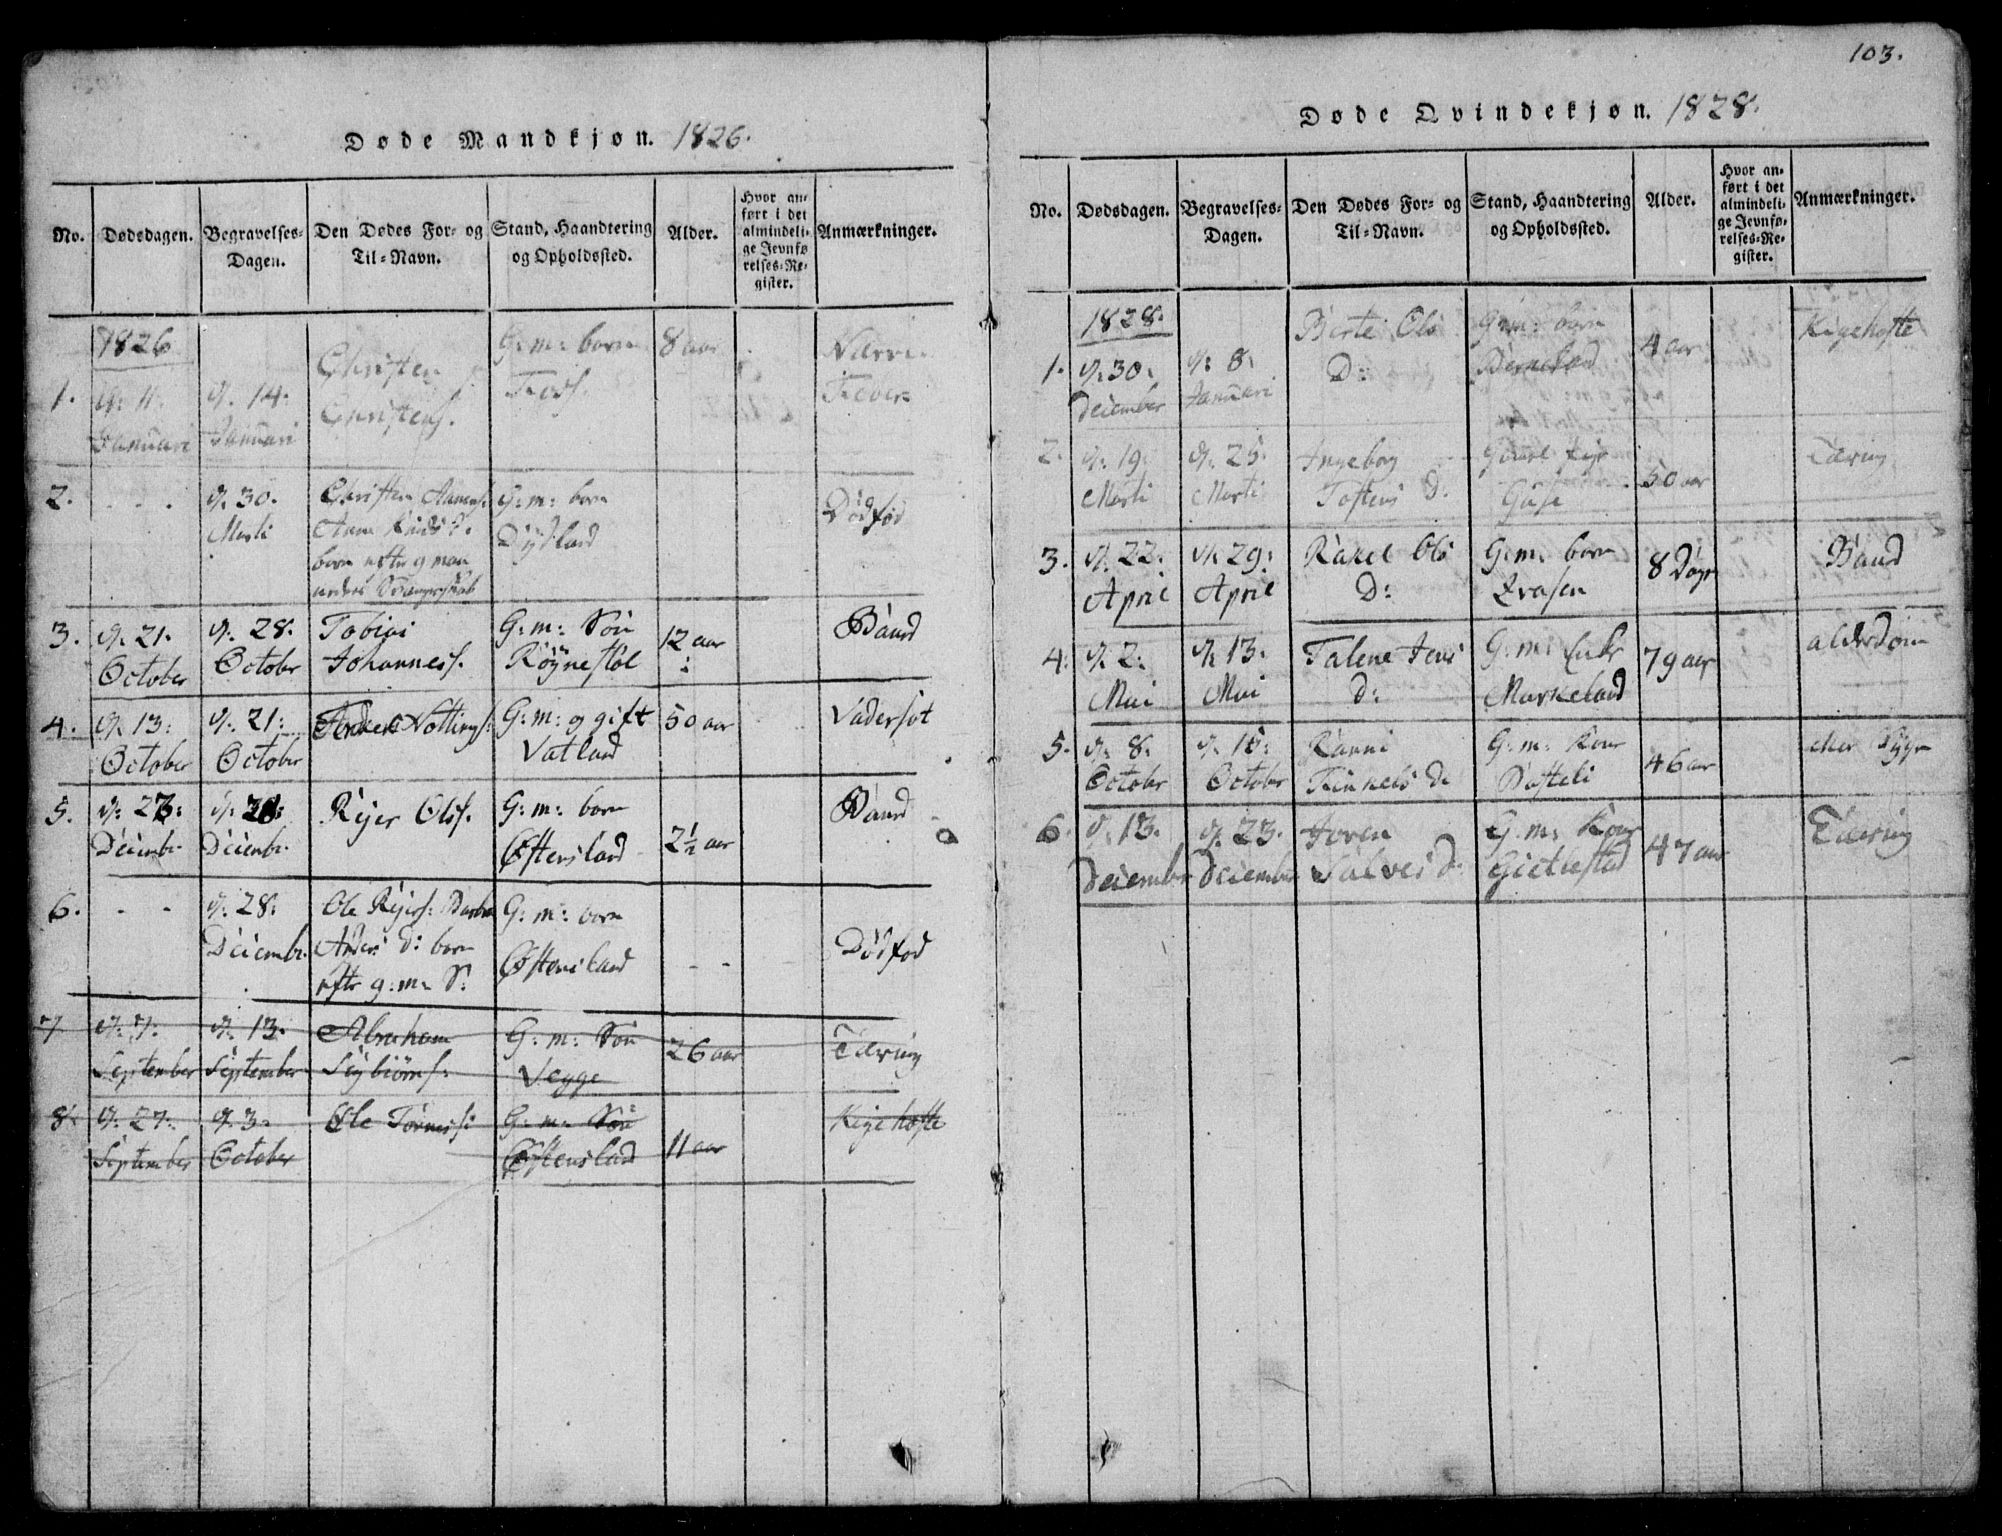 Døde Mandkjøn. 1826.
No. Dødsdagen. Begravelses-Dagen. Den Dødes For- og Til-Navn. Stand, Haandtering og Opholdssted. Alder. Hvor anført i det almindelige Jevnførelses-Register. Anmærkninger.
1826
1. d: 11. Januari d. 14. Januari Christen Christens. G: m: born 8 aar Nerve Fever
2. - - - d. 30. Marti Christen G: m: born Dydland Dødfød
3. d. 21. October d. 28. October Tobias Johanness. G: m: Søn Røynestøl 12 aar Baand
4. d. 13. October d. 21. October G: m: og gift Vatland 50 aar Vadersot
5. d. 23. Deiembr. Deiembr. Rejer Olss. G: m: born Østensland 2½ aar Baand
6. - - d. 28. Deiembr. Ole Rejers: Anders D: born efter 9: m: S: G: m: born Østensland - - Dødfød
7 d. 7. September d. 13. September Abraham Sigbiørns: G: m: Søn Vegge 26 aar Tæring
8 d. 27. September d. 3. October Ole Tørress: G: m: Søn Østensland 11 aar Kigehoste
103.
Døde Qvindekjøn. 1828.
No. Dødsdagen. Begravelses-Dagen. Den Dødes For- og Til-Navn. Stand, Haandtering og Opholdssted. Alder. Hvor anført i det almindelige Jevnførelses-Register. Anmærkninger.
1828.
1. d. 30. Deiember d: 8. Januari Birte Ols D: G: m: born 4 aar Kigehoste
2. d. 19. Marti d. 25. Marti Ingeborg Tostens D. 50 aar Tæring
3. d. 22. April d. 29. April Rakel Ols D: G: m: born 8 Døgn Baand
4. d. 2. Mai d. 13. Mai Talene Jens D: G: m: 79 aar alderdom
5. d. 8. October d. 15. October Ranni D. G: m: Kone 46 aar
6. d. 13. Deiember d. 23. Deiember Joren Salves D. G: m: Kone 47 aar Tæring